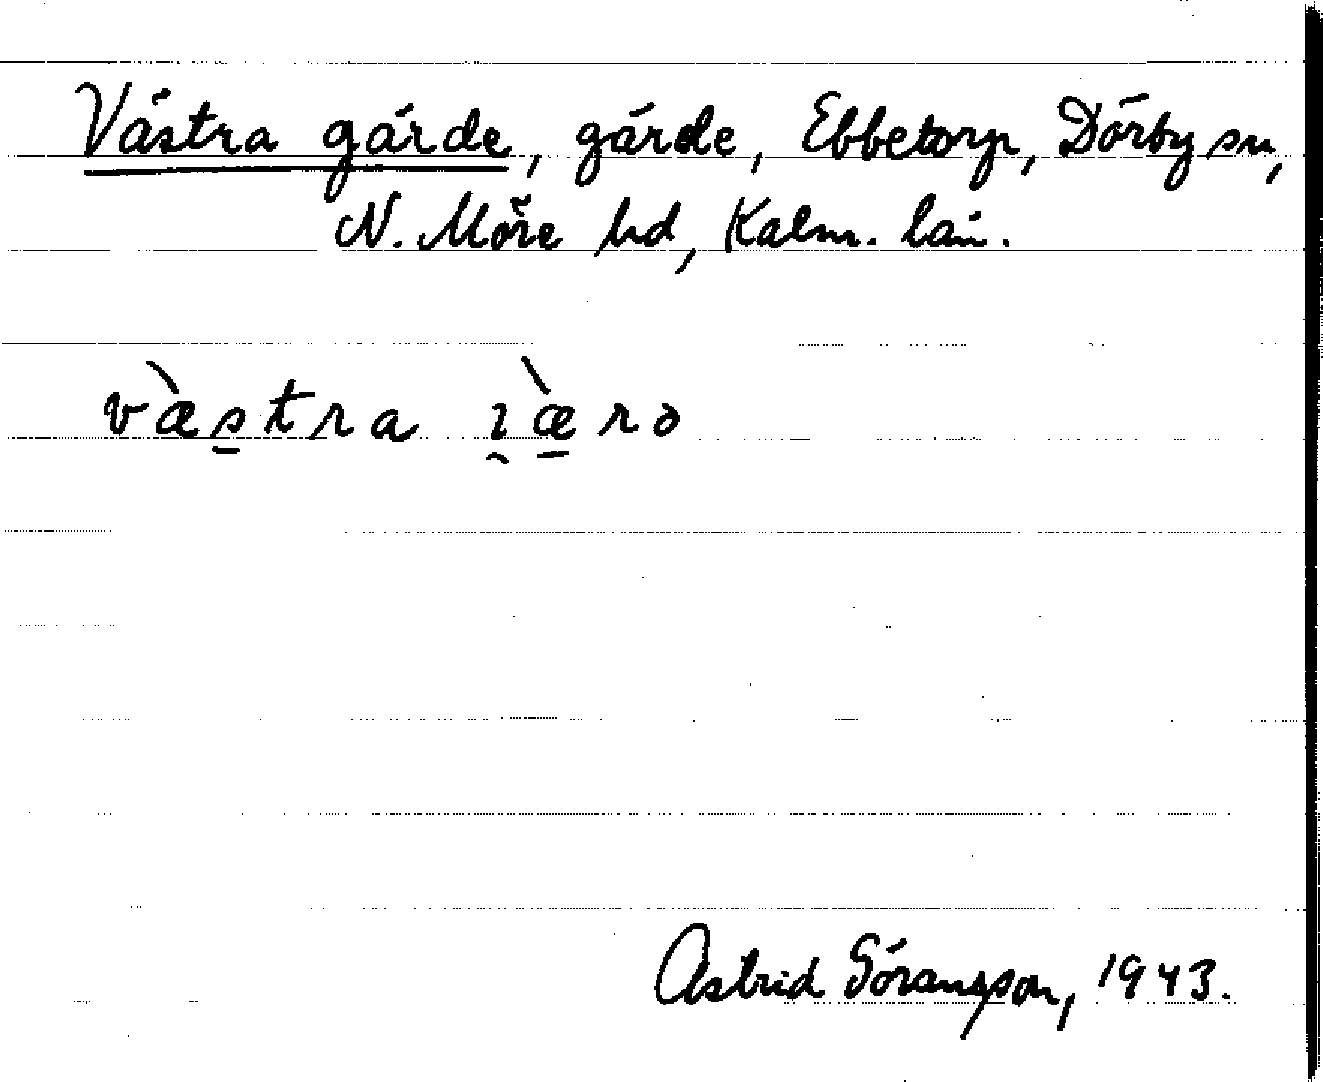 Västra gärde, gärde, Ebbetorp, Dörby sn,
N. Möre hd, Kalm. län.
væ̀s̠tra ı̯æ̠̀rə
Astrid Göransson, 1943.